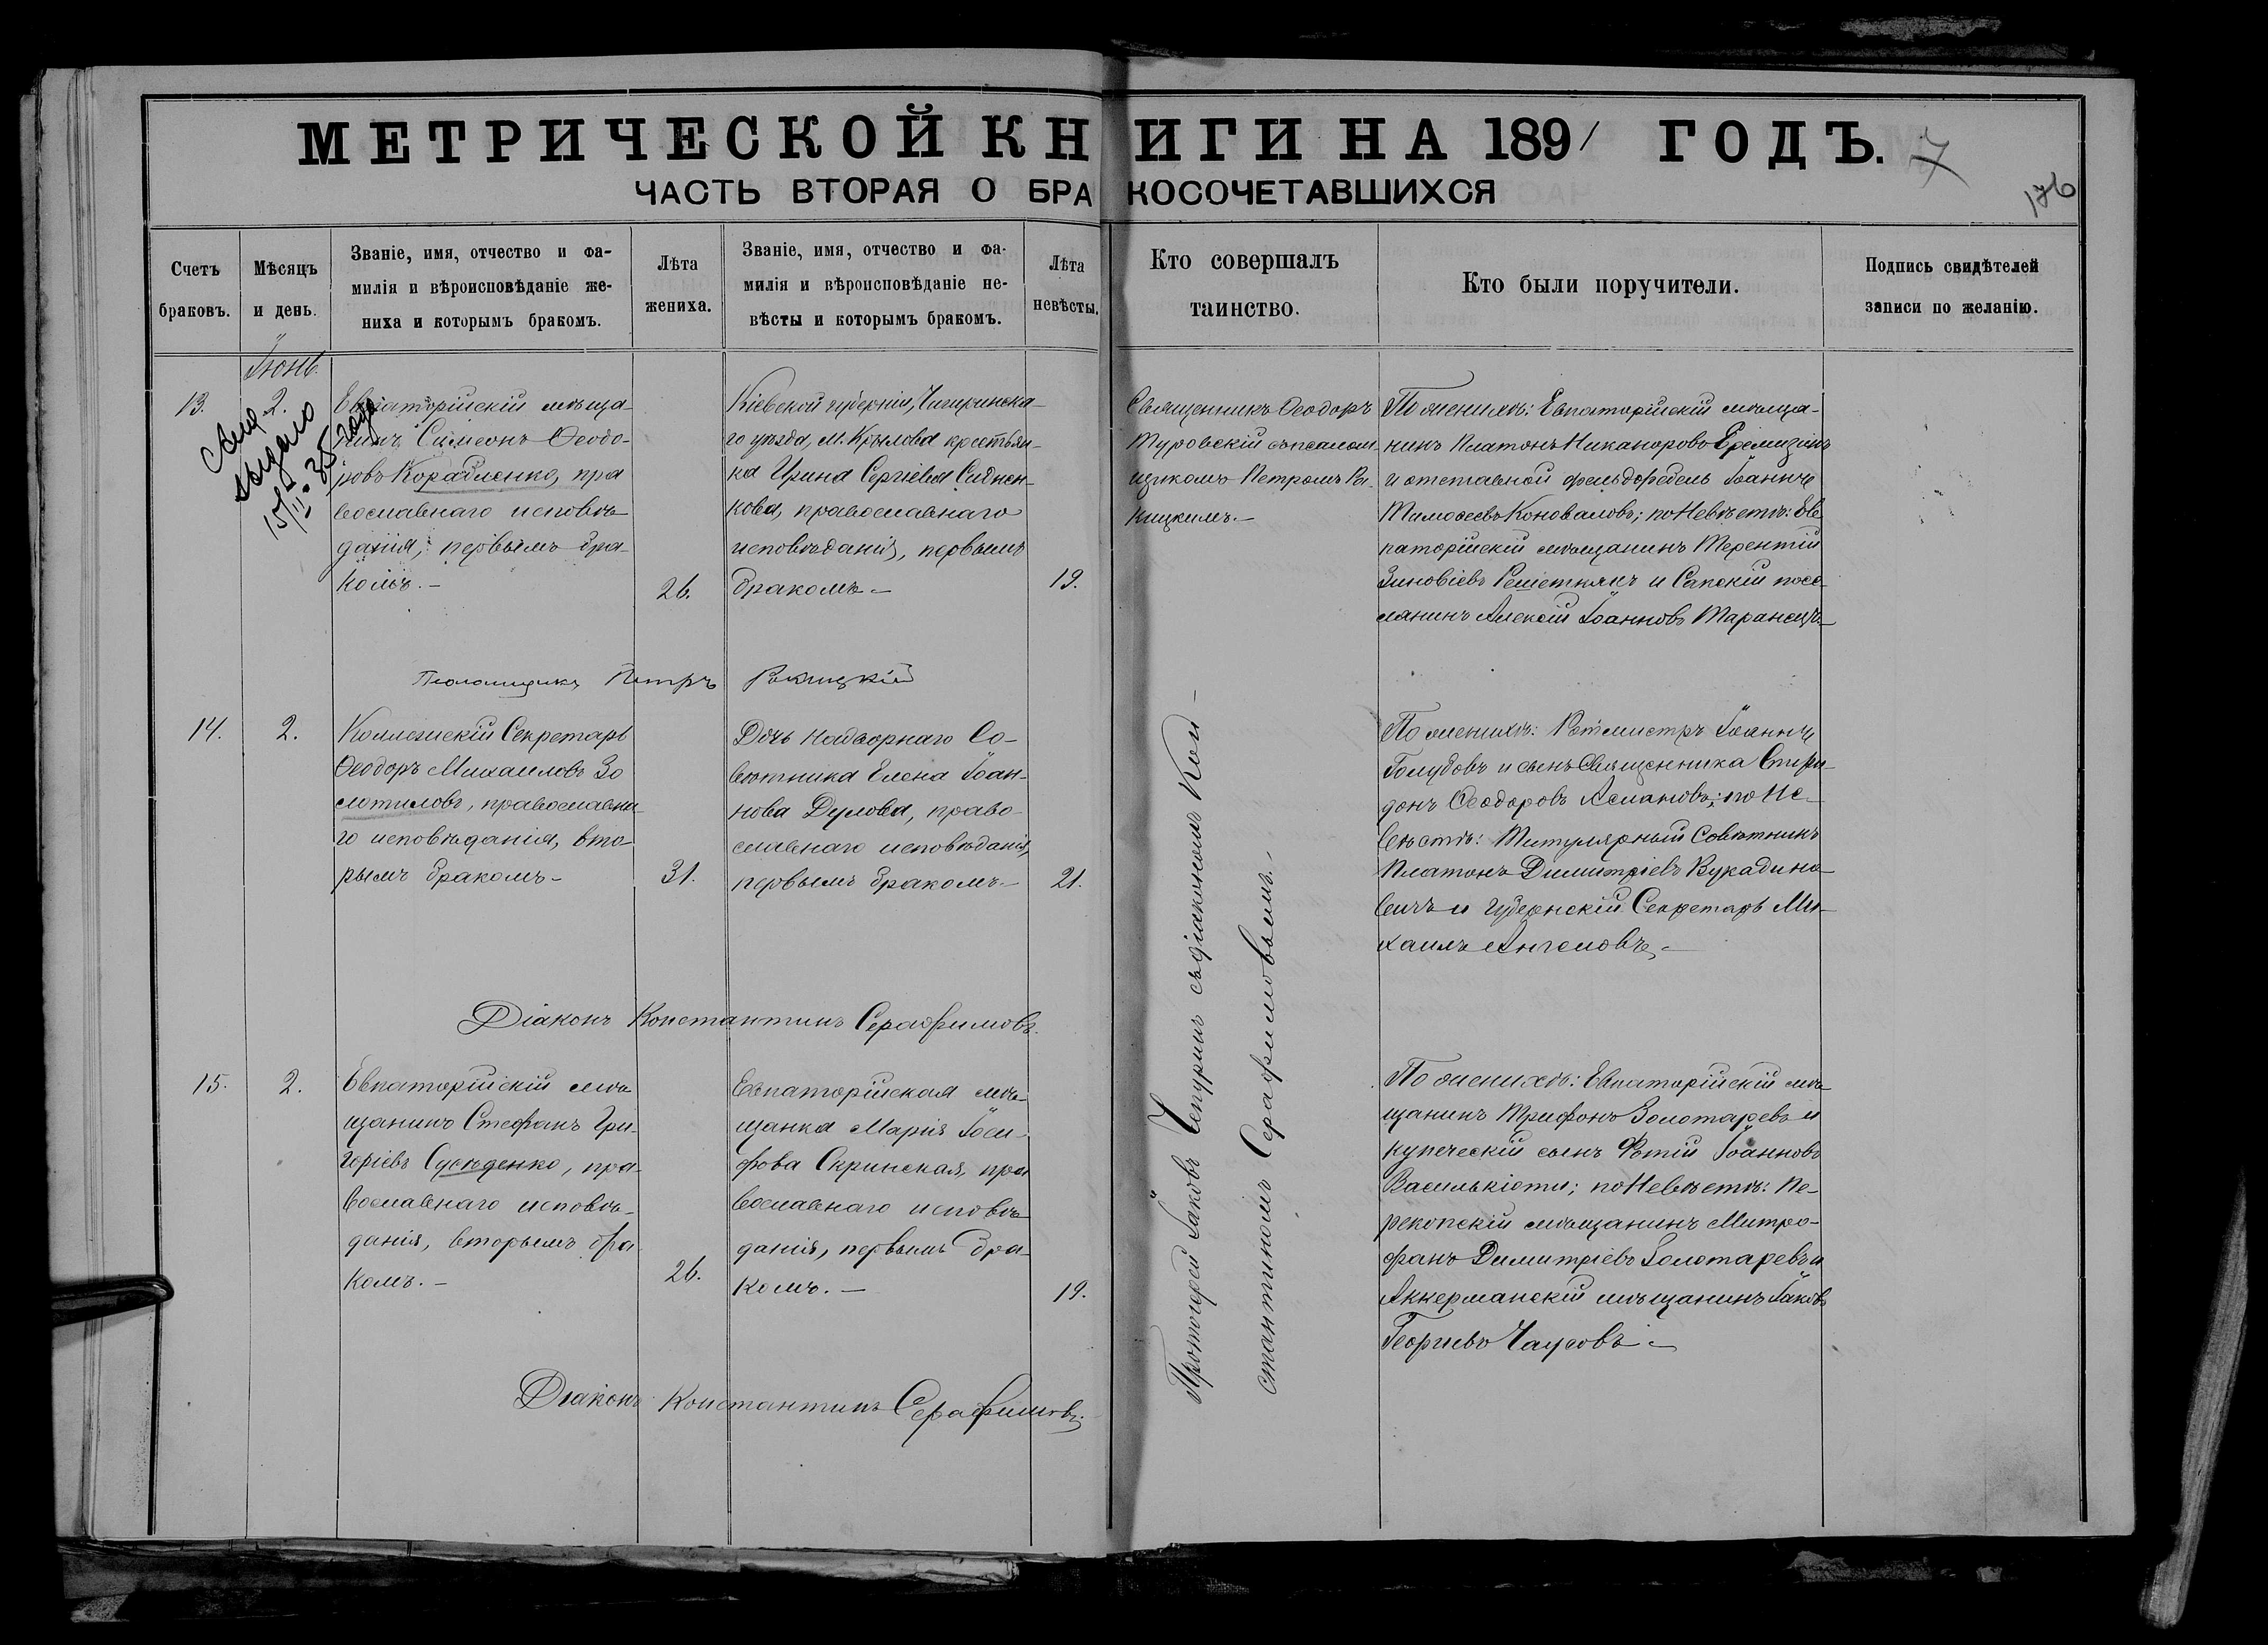 МЕТРИЧЕСКОЙ КНИГИ НА 1891 ГОДЪ.
7
176
ЧАСТЬ ВТОРАЯ О БРАКОСОЧЕТАВШИХСЯ
Счетъ
браковъ.
Мѣсяцъ
и день.
Званіе, имя, отчество и фа-
милія и вѣроисповѣданіе же-
ниха и которымъ бракомъ.
Лѣта
жениха.
Званіе, имя, отчество и фа-
милія и вѣроисповѣданіе не-
вѣсты и которымъ бракомъ.
Лѣта
невѣсты.
Кто совершалъ
таинство.
Кто были поручители.
Подпись свидѣтелей
записи по желанію.
Іюнь.
13.
2.
выдано
15/II-35 года
Евпаторійскій мѣща-
нинъ Симеонъ Ѳеодо-
ровъ Корабленко, пра
вославнаго исповѣ-
данія, первымъ бра-
комъ.-
26.
Кіевской губерніи, Чигиринска-
го уѣзда, М. Крылова крестьян-
ка Ирина Сергіева Сиднен-
кова, православнаго
исповѣданія, первымъ
бракомъ.-
19.
Священникъ Ѳеодоръ
Туровскій съ псалом-
щикомъ Петромъ Ро-
кицкимъ.-
По женихѣ: Евпаторійскій мѣща-
нинъ Платонъ Никаноровъ
и отставной фельдфебель Іоаннъ
Тимоѳеевъ Коноваловъ; по Невѣстѣ: Ев
паторійскій мѣщанинъ Терентій
Зиновіевъ Решетнякъ и Сакскій посе-
лянинъ Алексій Іоанновъ Таранецъ
Псаломщикъ Петръ Рокицкій
14.
2.
Коллежскій Секретарь
Ѳеодоръ Михаиловъ Зо
лотиловъ, православна
го исповѣданія, вто-
рымъ бракомъ-
31.
Дочь Надворнаго Со-
вѣтника Елена Іоан-
нова Дулова, право-
славнаго исповѣданія,
первымъ бракомъ.-
21.
Протоіерей Іаковъ Чепуринъ съ діакономъ Кон-
стантиномъ Серафимовымъ.-
По женихѣ: Ротмистръ Іоаннъ
Голубовъ и сынъ Священника Спири-
донъ Ѳеодоровъ; по Не-
вѣстѣ: Титулярный Совѣтникъ
Платонъ Димитріевъ Вукадино-
вичъ и Губернскій Секретарь Ми-
хаилъ Ангеловъ.-
Діаконъ Константинъ Серафимовъ.
15.
2.
Евпаторійскій мѣ-
щанинъ Стефанъ Гри-
горіевъ Сусѣденко, пра-
вославнаго исповѣ-
данія, вторымъ бра
комъ.-
26.
Евпаторійская мѣ-
щанка Марія Іоси-
фова Скринская, пра
вославнаго исповѣ
данія, первымъ бра-
комъ.-
19.
По женихѣ: Евпаторійскій мѣ-
щанинъ Трифонъ Золотаревъ и
купеческій сынъ Фотій Іоанновъ
Василькіоти; по Невѣстѣ: Пе-
рекопскій мѣщанинъ Митро-
фанъ Димитріевъ Золотаревъ и
Аккерманскій мѣщанинъ Іаковъ
Георгіевъ Чаусовъ.-
Діаконъ Константинъ Серафимовъ.